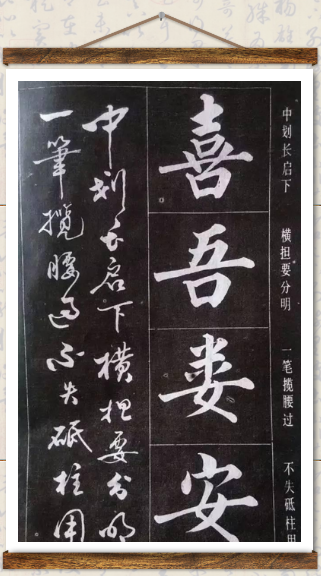 中划长启下 横担要分明 一笔揽腰过 不失砥柱用
喜吾娄安
中划长启下横担要分明
一筆揽腰过不失砥柱用